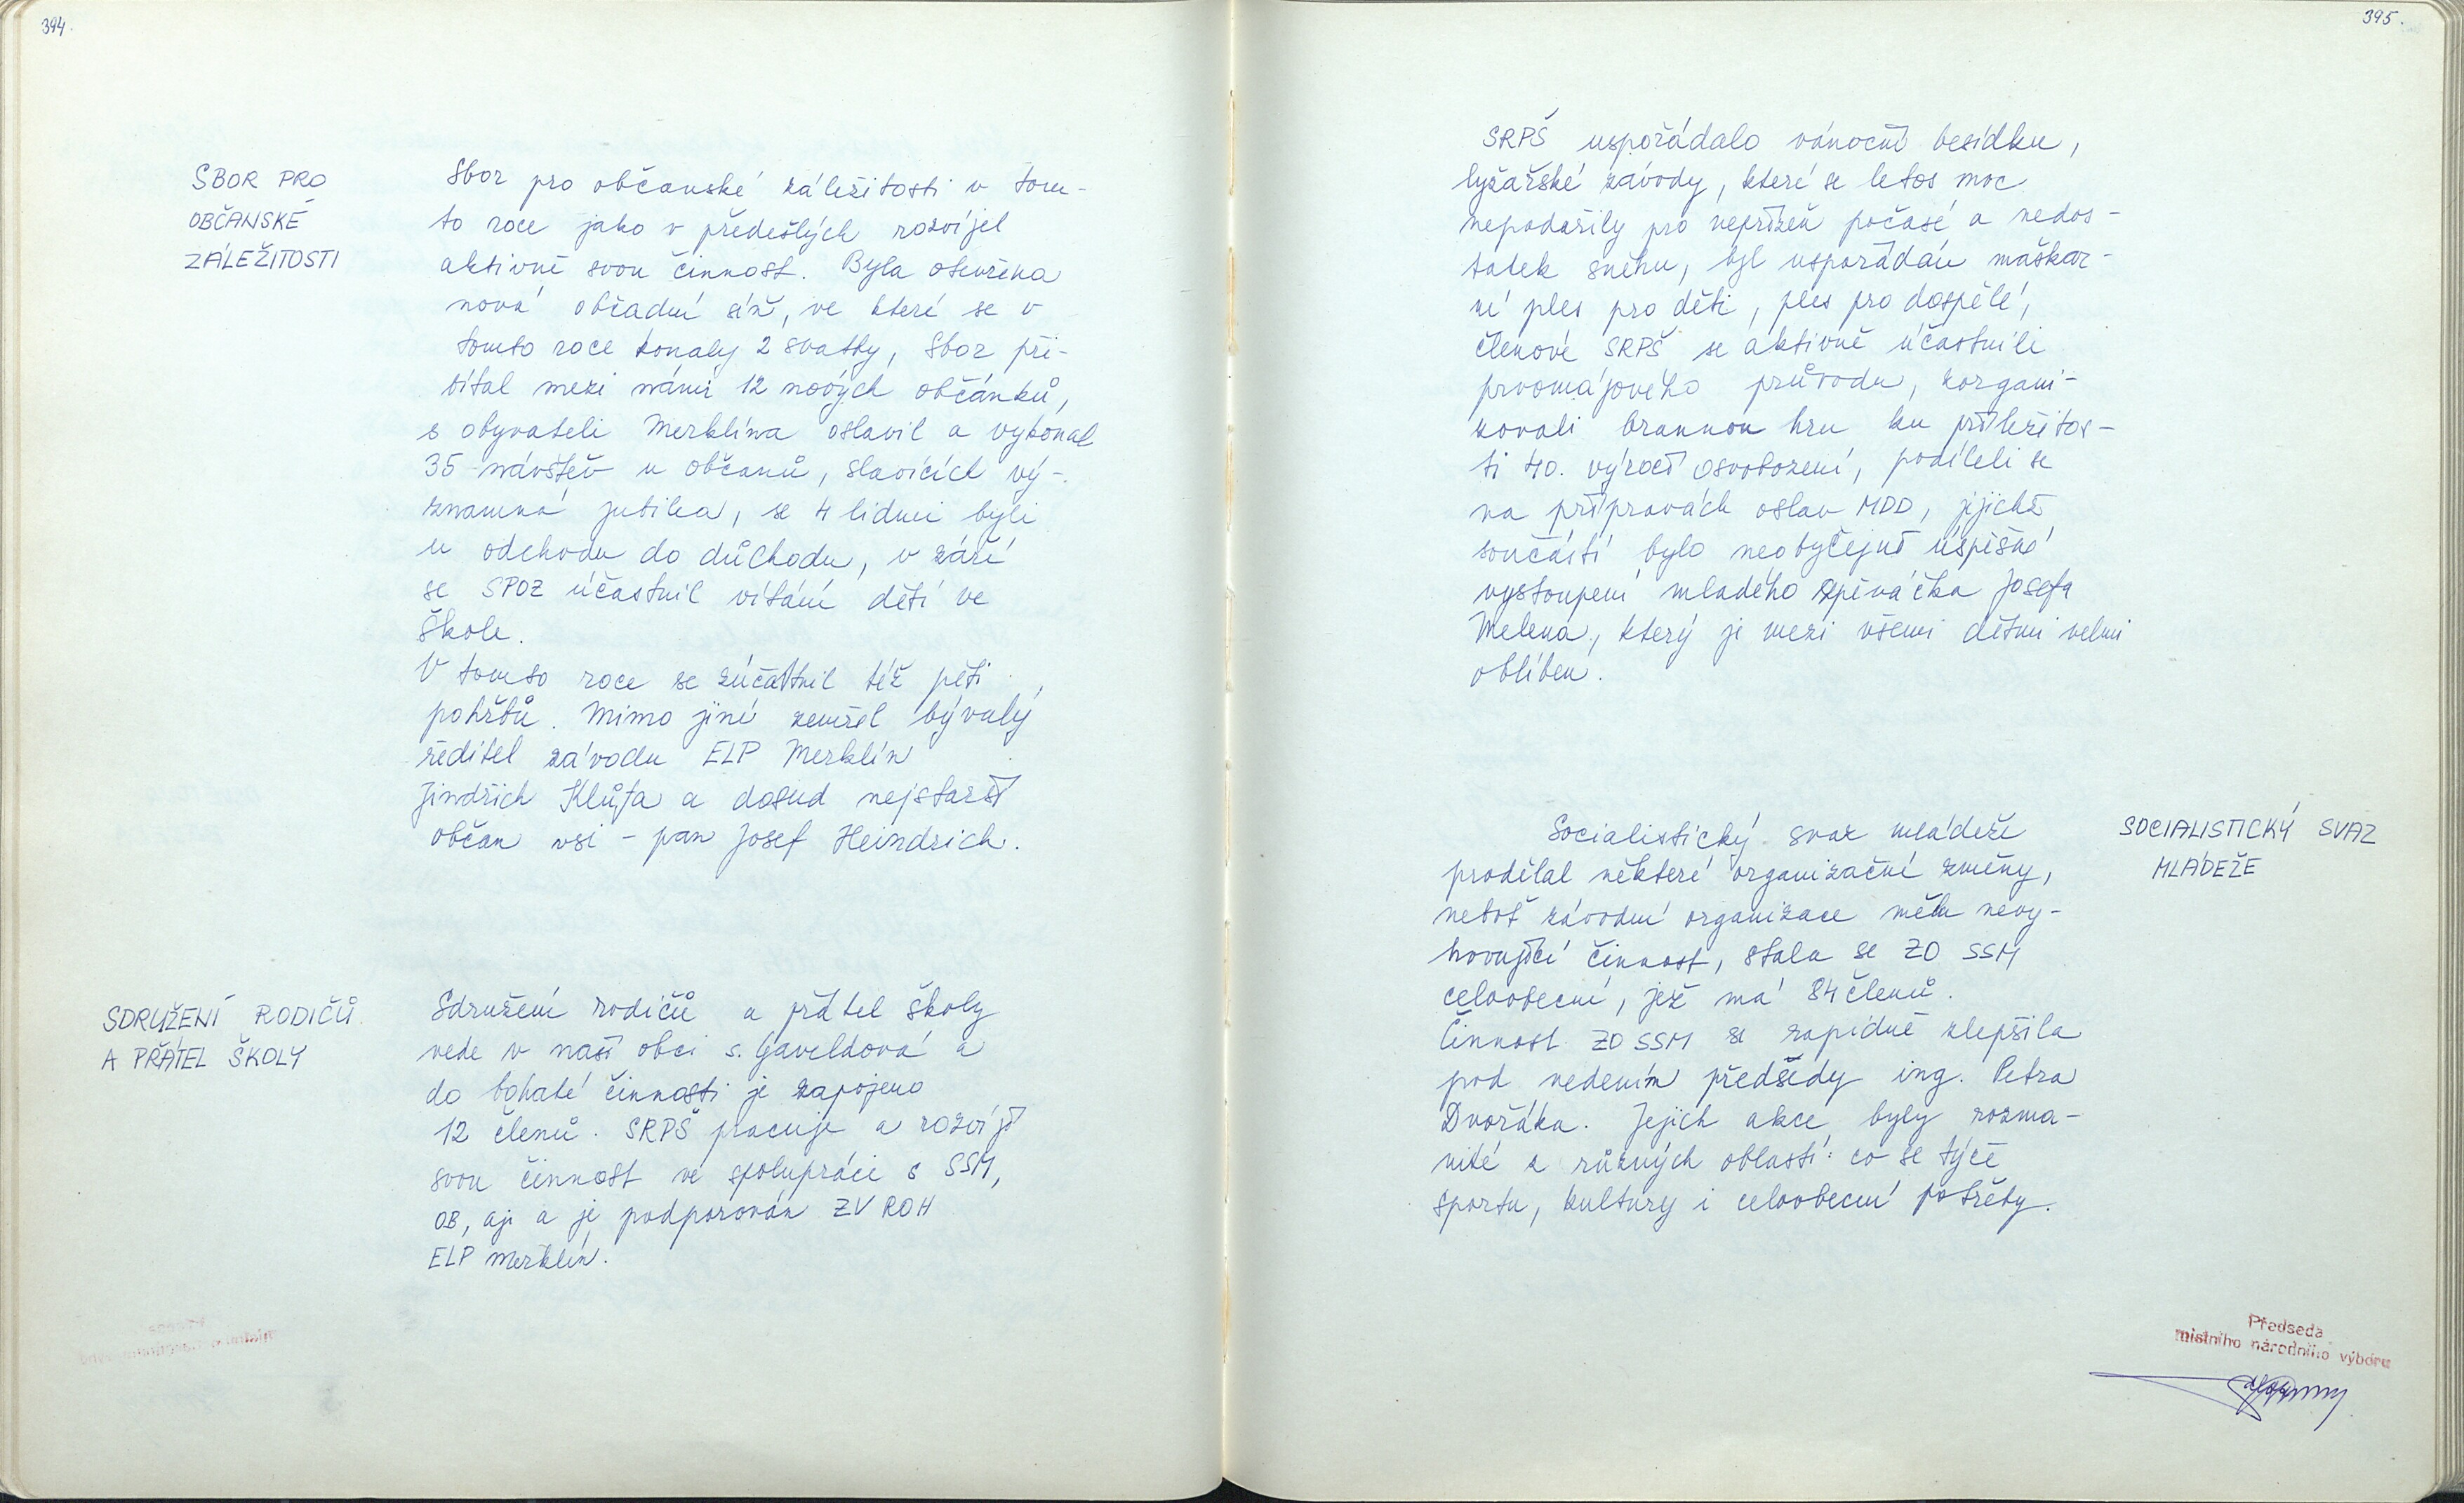 394.
SBOR PRO
OBČANSKÉ
ZÁLEŽITOSTI
Sbor pro občanské záležitosti v tom-
to roce jako v předešlých rozvíjel
aktivně svou činnost. Byla otevřena
nová obřadní síň, ve které se v
tomto roce konaly 2 svatby, Sbor při-
vítal mezi námi 12 nových občánků,
s obyvateli Merklína oslavil a vykonal
35 návštěv u občanů, slavících vý-
znamná jubilea, se 4 lidmi byli
u odchodu do důchodu, v září
se SPOZ účastnil vítání dětí ve
škole.
V tomto roce se zúčastnil též pěti
pohřbů. Mimo jiné zemřel bývalý
ředitel závodu ELP Merklín
Jindřich Klůfa a dosud nejstarší
občan vsi - pan Josef Heindrich.
SDRUŽENÍ RODIČŮ
A PŘÁTEL ŠKOLY
Sdružení rodičů a přátel školy
vede v naší obci s. Gaveldová a
do bohaté činnosti je zapojeno
12 členů. SRPŠ pracuje a rozvíjí
svou činnost ve spolupráci s SSM,
OB, aj. a je podporován ZV ROH
ELP Merklín.
395.
SRPŠ uspořádalo vánoční besídku,
lyžařské závody, které se letos moc
nepodařily pro nepřízeň počasí a nedos-
tatek sněhu, byl uspořádán maškar-
ní ples pro děti, ples pro dospělé,
členové SRPŠ se aktivně účastnili
prvomájového průvodu, zorgani-
zovali brannou hru ku příležitos-
ti 40. výročí osvobození, podíleli se
na přípravách oslav MDD, jejichž
součástí bylo neobyčejně úspěšné
vystoupení mladého zpěváčka Josefa
Melena, který je mezi všemi dětmi velmi
oblíben.
SOCIALISTICKÝ SVAZ
MLÁDEŽE
Socialistický svaz mládeže
prodělal některé organizační změny,
neboť závodní organizace měla nevy-
hovující činnost, stala se ZO SSM
celoobecní, jež má 84 členů.
Činnost ZO SSM se rapidně zlepšila
pod vedením předsedy ing. Petra
Dvořáka. Jejich akce byly rozma-
nité z různých oblastí: co se týče
sportu, kultury i celoobecní potřeby.
Předseda
místního národního výboru